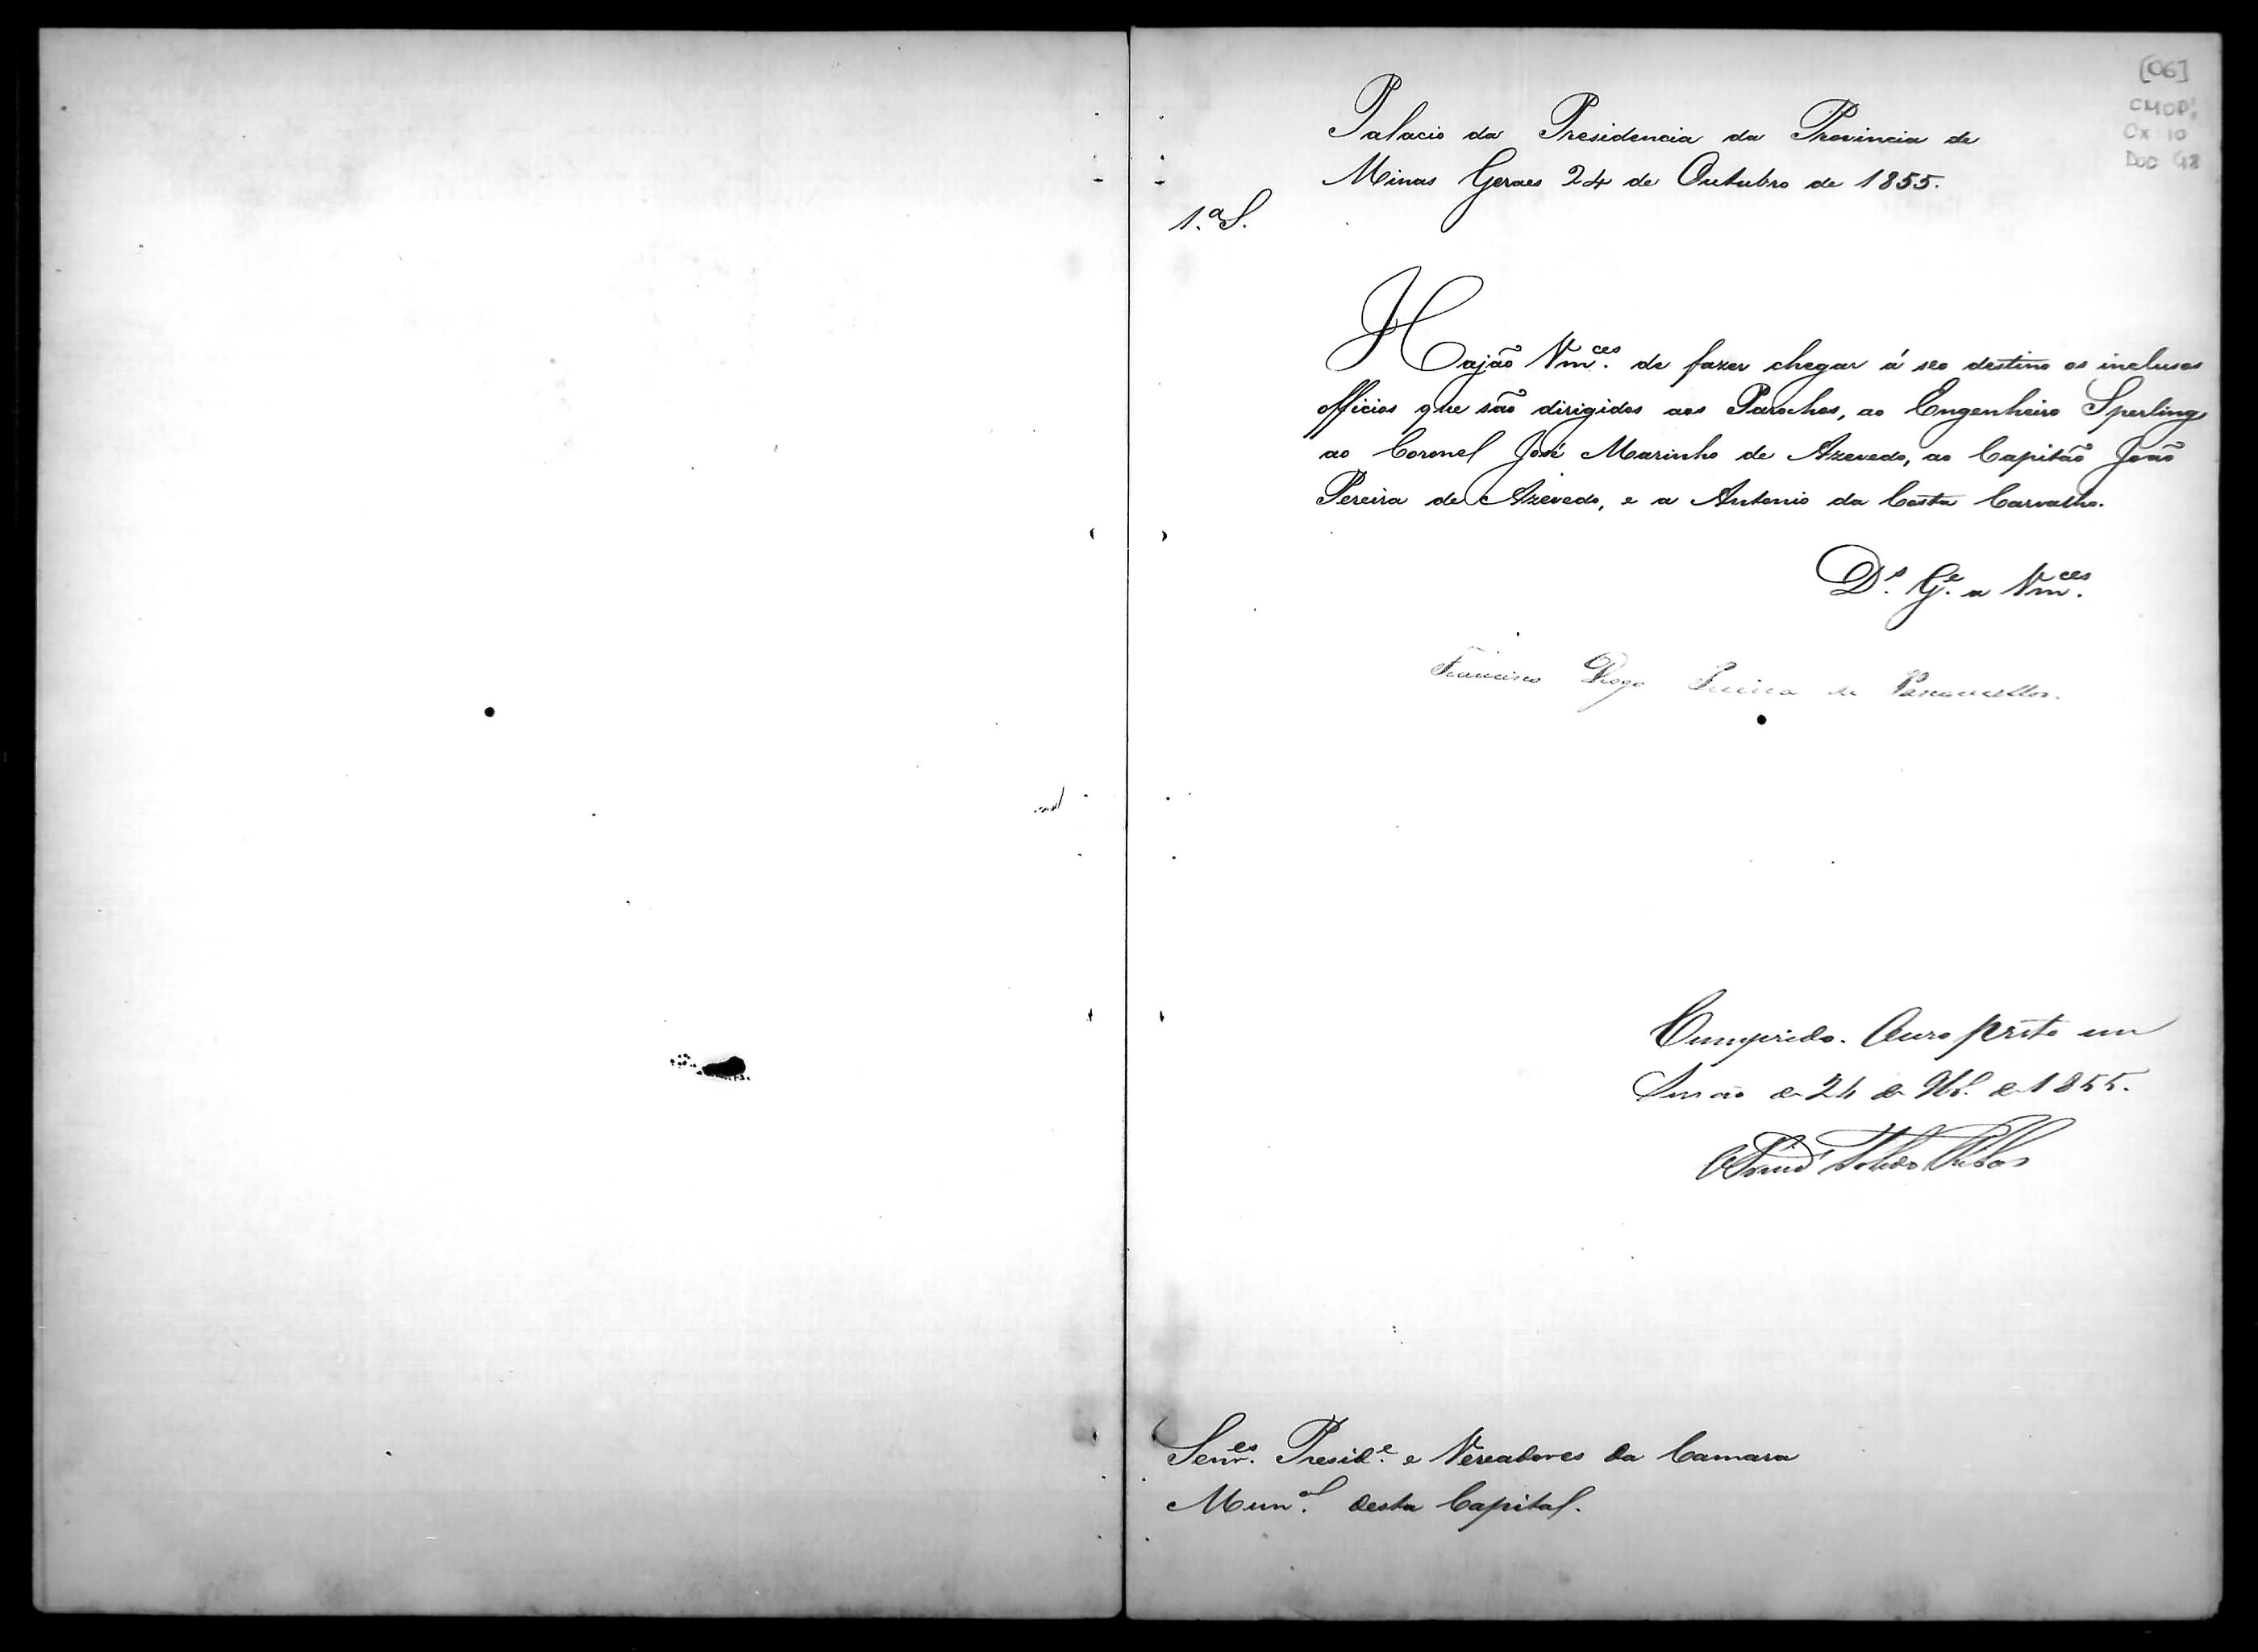 [06]
CMOP,
Cx 10
Doc 48
Palacio da Presidencia da Provincia de
Minas Geraes 24 de Outubro de 1855.
1.ª S.
Hajão Vm.ces de fazer chegar á seo destino os inclusos
officios que são dirigidos aos Parochos, ao Engenheiro Sperling
ao Coronel José Marinho de Azevedo, ao Capitão João
Pereira de Azevedo, e a Antonio da Costa Carvalho.
D.s G.e a Vm.ces
Francisco Diogo Pereira de Vasconcellos.
Cumprido. Ouro preto em
Sessão de 24 de de 1855.
Senr.es Presid.e e Vereadores da Camara
Mun.al desta Capital.